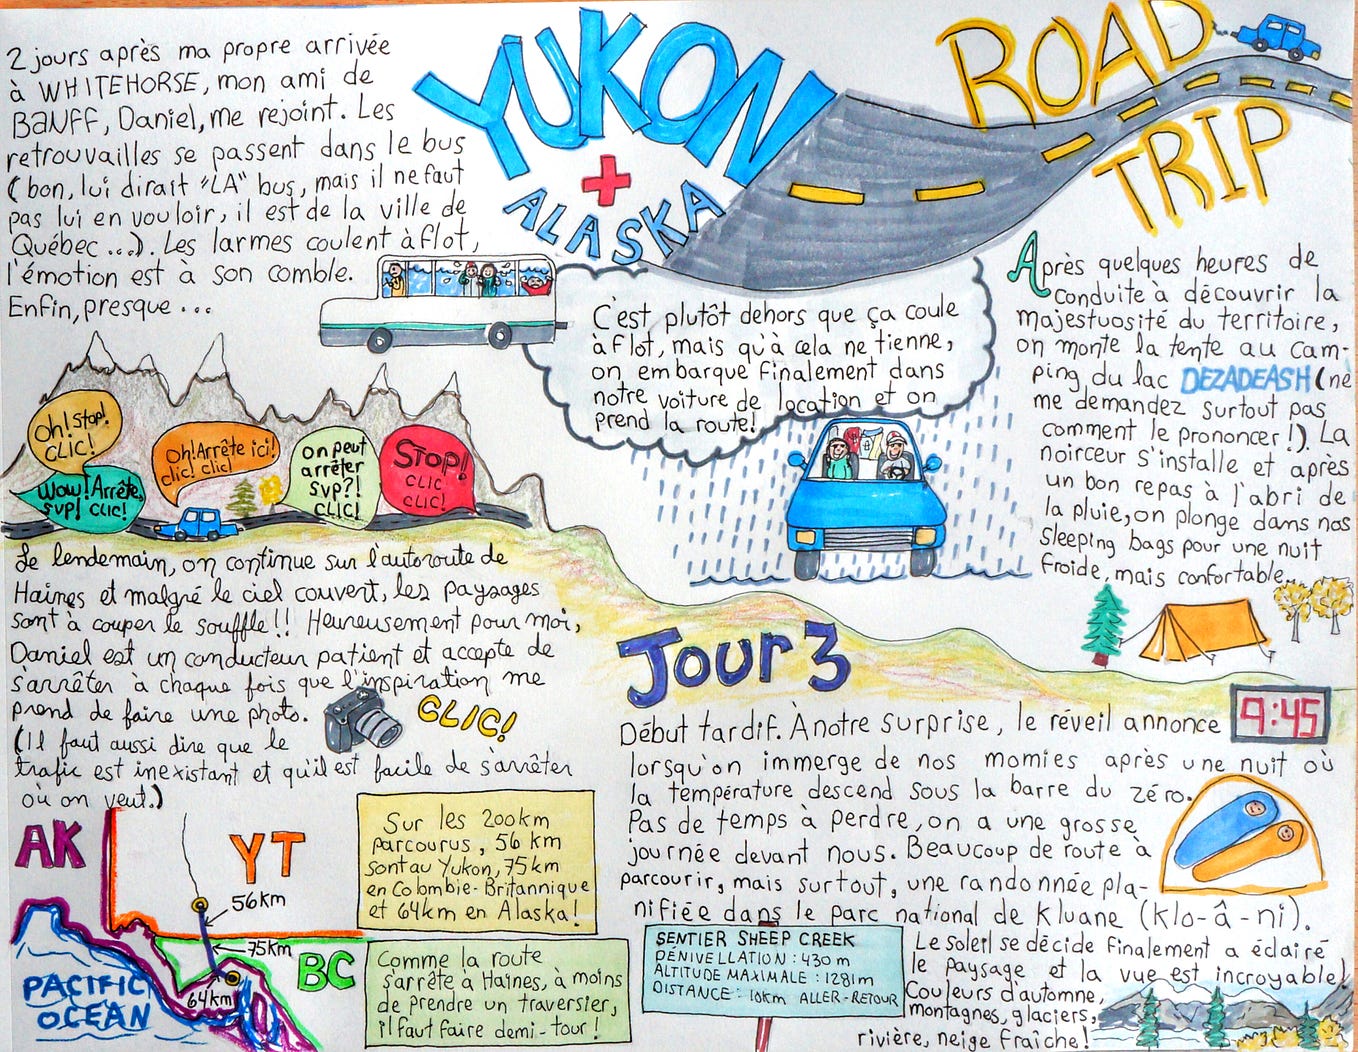 YUKON
+
ALASKA
ROAD
TRIP
2 jours après ma propre arrivée
à WHITEHORSE, mon ami de
BANFF, Daniel, me rejoint. Les
retrouvailles se passent dans le bus
(bon, lui dirait "LA" bus, mais il ne faut
pas lui en vouloir, il est de la ville de
Québec...). Les larmes coulent à flot,
l'émotion est à son comble.
Enfin, presque...
C'est plutôt dehors que ça coule
à flot, mais qu'à cela ne tienne,
on embarque finalement dans
notre voiture de location et on
prend la route!
Après quelques heures de
conduite à découvrir la
majestuosité du territoire,
on monte la tente au cam-
ping du lac DEZADEASH (ne
me demandez surtout pas
comment le prononcer!). La
noirceur s'installe et après
un bon repas à l'abri de
la pluie, on plonge dans nos
sleeping bags pour une nuit
froide, mais confortable...
Oh! Stop!
CLIC!
Wow! Arrête,
svp! CLIC!
Oh! Arrête ici!
clic! clic!
On peut
arrêter
svp?!
CLIC!
STOP!
CLIC
CLIC!
Le lendemain, on continue sur l'autoroute de
Haines et malgré le ciel couvert, les paysages
sont à couper le souffle!! Heureusement pour moi,
Daniel est un conducteur patient et accepte de
s'arrêter à chaque fois que l'inspiration me
prend de faire une photo.
(Il faut aussi dire que le
trafic est inexistant et qu'il est facile de s'arrêter
où on veut.)
CLIC!
AK
YT
BC
PACIFIC
OCEAN
56km
75km
64km
Sur les 200km
parcourus, 56 km
sont au Yukon, 75km
en Colombie-Britannique
et 64km en Alaska!
Comme la route
s'arrête à Haines, à moins
de prendre un traversier,
il faut faire demi-tour!
Jour 3
Début tardif. À notre surprise, le réveil annonce 9:45
lorsqu'on immerge de nos momies après une nuit où
la température descend sous la barre du zéro.
Pas de temps à perdre, on a une grosse
journée devant nous. Beaucoup de route à
parcourir, mais surtout, une randonnée pla-
nifiée dans le parc national de Kluane (klo-â-ni).
SENTIER SHEEP CREEK
DÉNIVELLATION : 430 m
ALTITUDE MAXIMALE : 1281m
DISTANCE : 10km ALLER-RETOUR
Le soleil se décide finalement a éclairé
le paysage et la vue est incroyable!
Couleurs d'automne,
montagnes, glaciers,
rivière, neige fraîche!